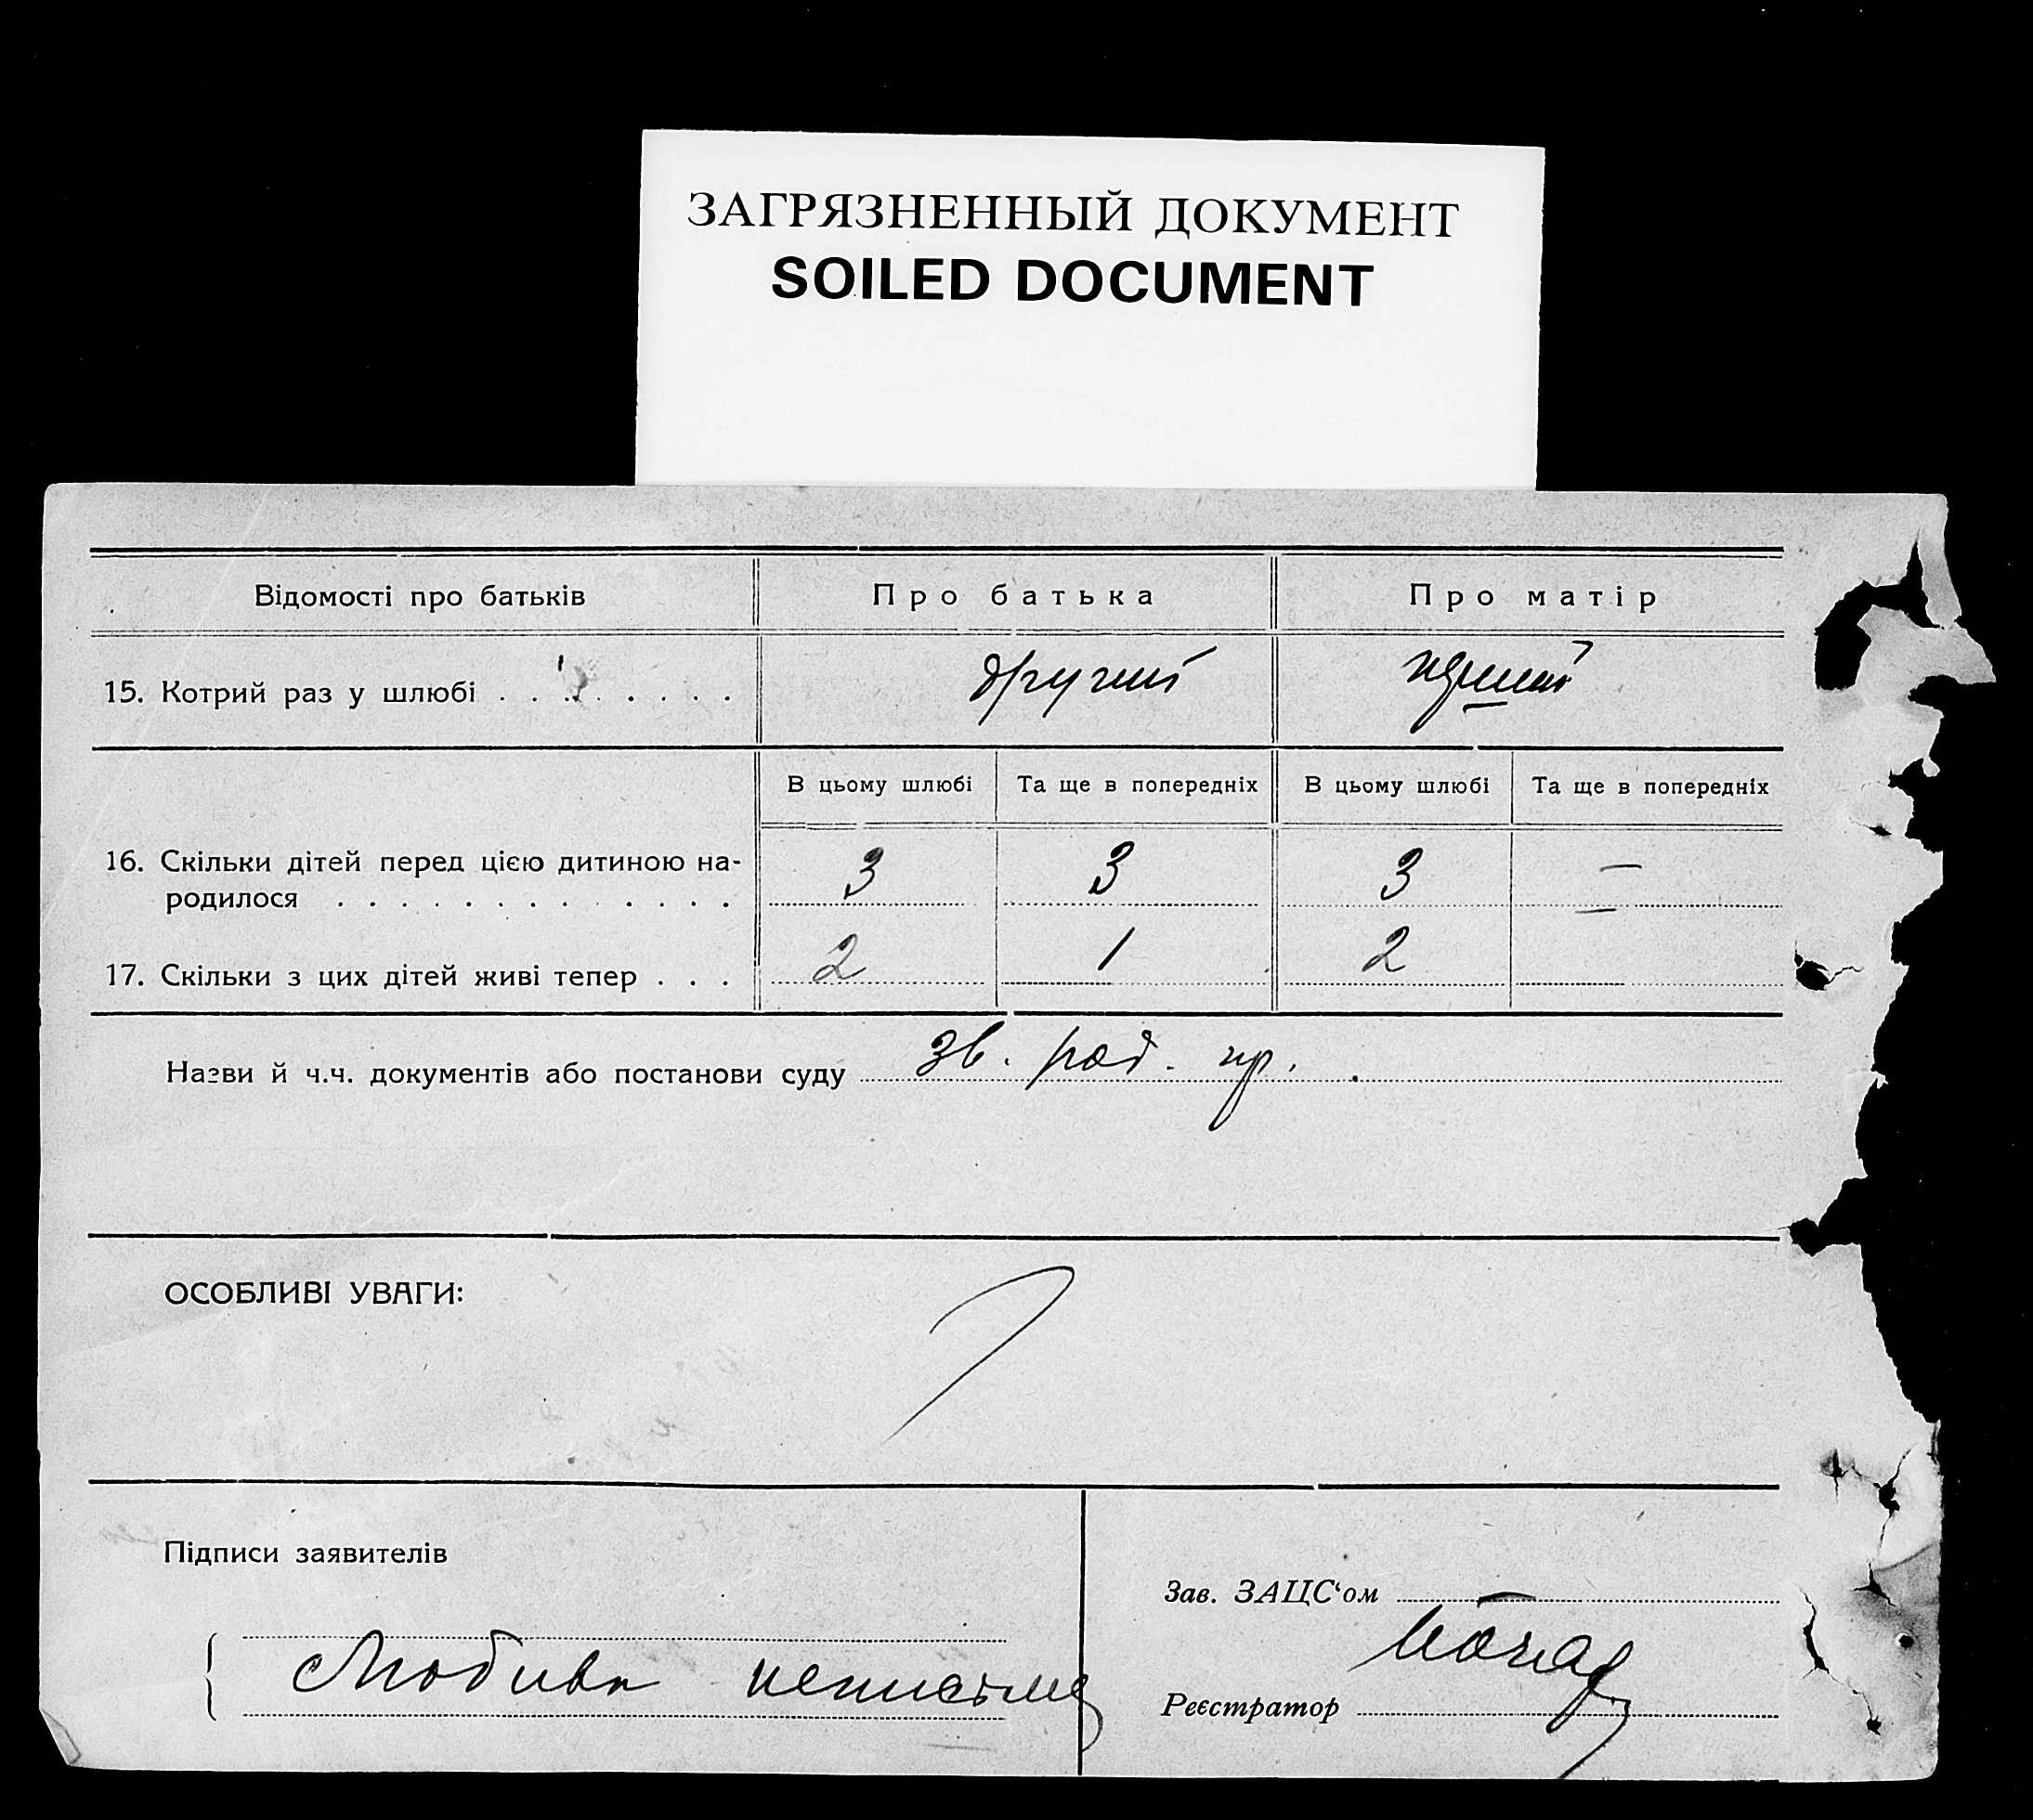 ЗАГРЯЗНЕННЫЙ ДОКУМЕНТ
SOILED DOCUMENT
Відомості про батьків Про батька Про матір
15. Котрий раз у шлюбі . . . . . . . . другий
В цьому шлюбі Та ще в попередніх В цьому шлюбі Та ще в попередніх
16. Скільки дітей перед цією дитиною на-
родилося . . . . . . . . . . . . . 3 3 3 —
17. Скільки з цих дітей живі тепер . . . 2 1 2 —
Назви й ч.ч. документів або постанови суду зв. род. пр.
ОСОБЛИВІ УВАГИ:
Підписи заявителів
Зав. ЗАЦС‘ом
Реєстратор